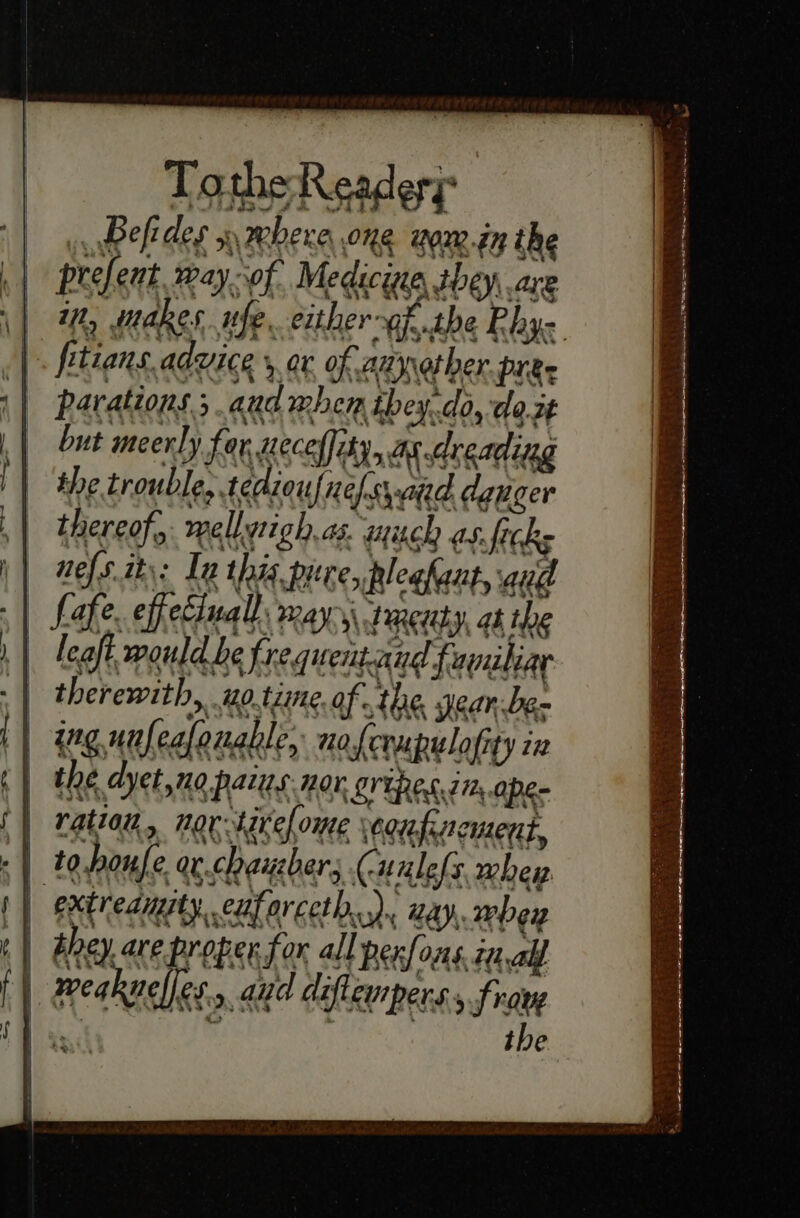 To the Reader;
Beſides, where one now in the
preſent way of Medicine they are
in, makes uſe either of the Phy-
ſitians advice, or of any other pre-
parations; and when they do, do it
but meerly for neceſſity, as dreading
the trouble, tediouſneſs, and danger
thereof, wellnigh as much as ſick-
neſs it: In this pure, pleaſant, and
ſafe effectuall way, twenty at the
leaſt would be frequent and familiar
therewith, no time of the year be-
ing unſeaſonable, no ſcrupuloſity in
the dyet, no pains nor gripes in ope-
ration, nor tireſome confinement,
to houſe or chamber, (unleſs when
extreamity enforceth,) nay, when
they are proper for all perſons in all
weakneſſes, and diſtempers, from
the